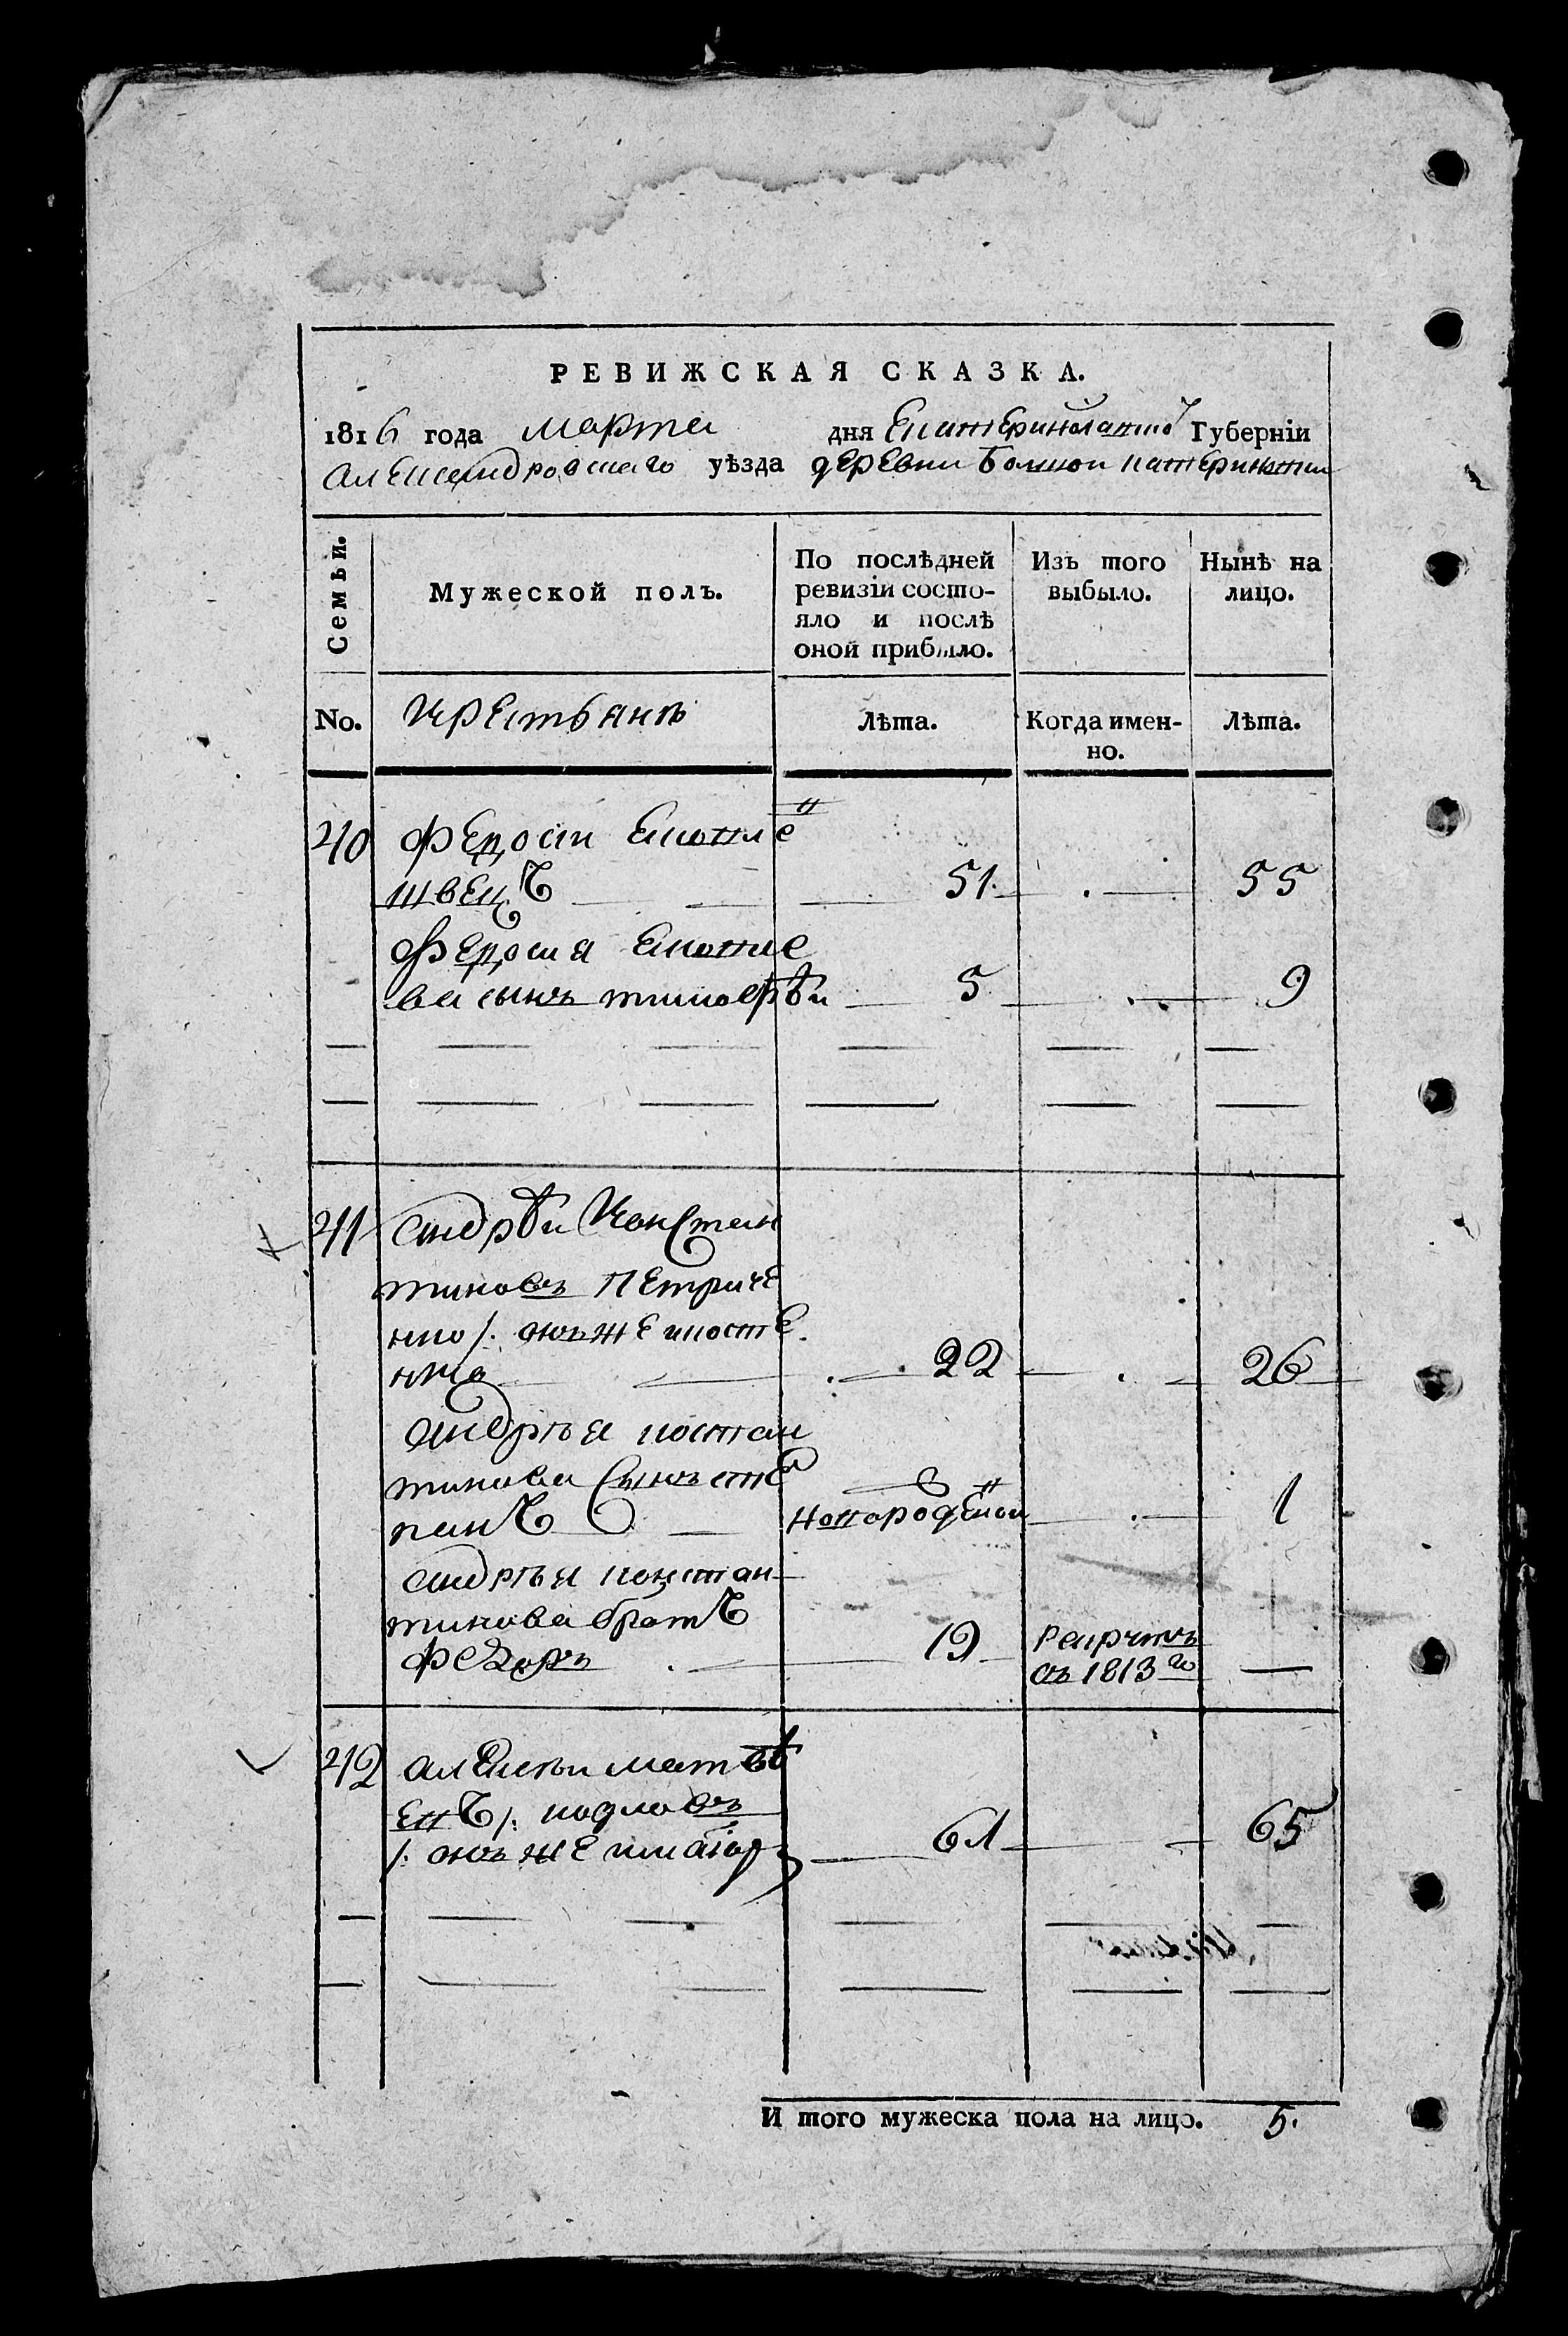 РЕВИЖСКАЯ СКАЗКА.
1816 года марта дня Екатеринославской Губерніи
Александровскаго уѣзда деревни Болшои катериновки
Семьи. Мужеской полъ. По послѣдней ревизіи состояло и послѣ оной прибыло. Изъ того выбыло. Нынѣ на лицо.
No. крестьянѣ Лѣта. Когда именно. Лѣта.
40 Федоси
швецъ 51. 55
Федосия
ва сынъ тимофѣи 5 9
41 андрѣи констан
тиновъ петриче
нко /: онъ же косте
нко 22 26
андрѣя костан
тинова сынъ сте
панъ новорожденои 1
андрѣя констан
тинова братъ
Федоръ 19 рекрутъ
въ 1813го
42 алексѣи матвѣ
евъ /: козловъ
/: онъ же 61 65
И того мужеска пола на лицо. 5.